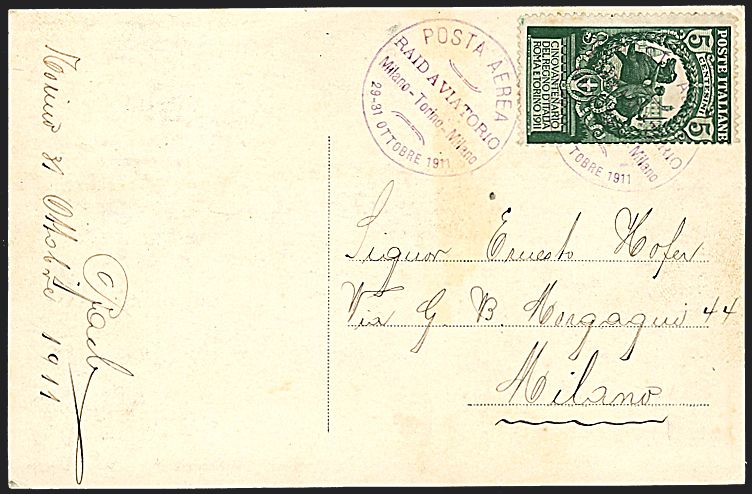 POSTA AEREA
RAID AVIATORIO
Milano-Torino-Milano
29-31 OTTOBRE 1911
POSTE ITALIANE
CENTESIMI
5 5
CINQVANTENARIO
DEL REGNO D'ITALIA
ROMA E TORINO 1911
Milano
OTTOBRE 1911
Signor Ernesto Hofer
Via G. B. Morgagni 44
Milano
Torino 31 Ottobre 1911